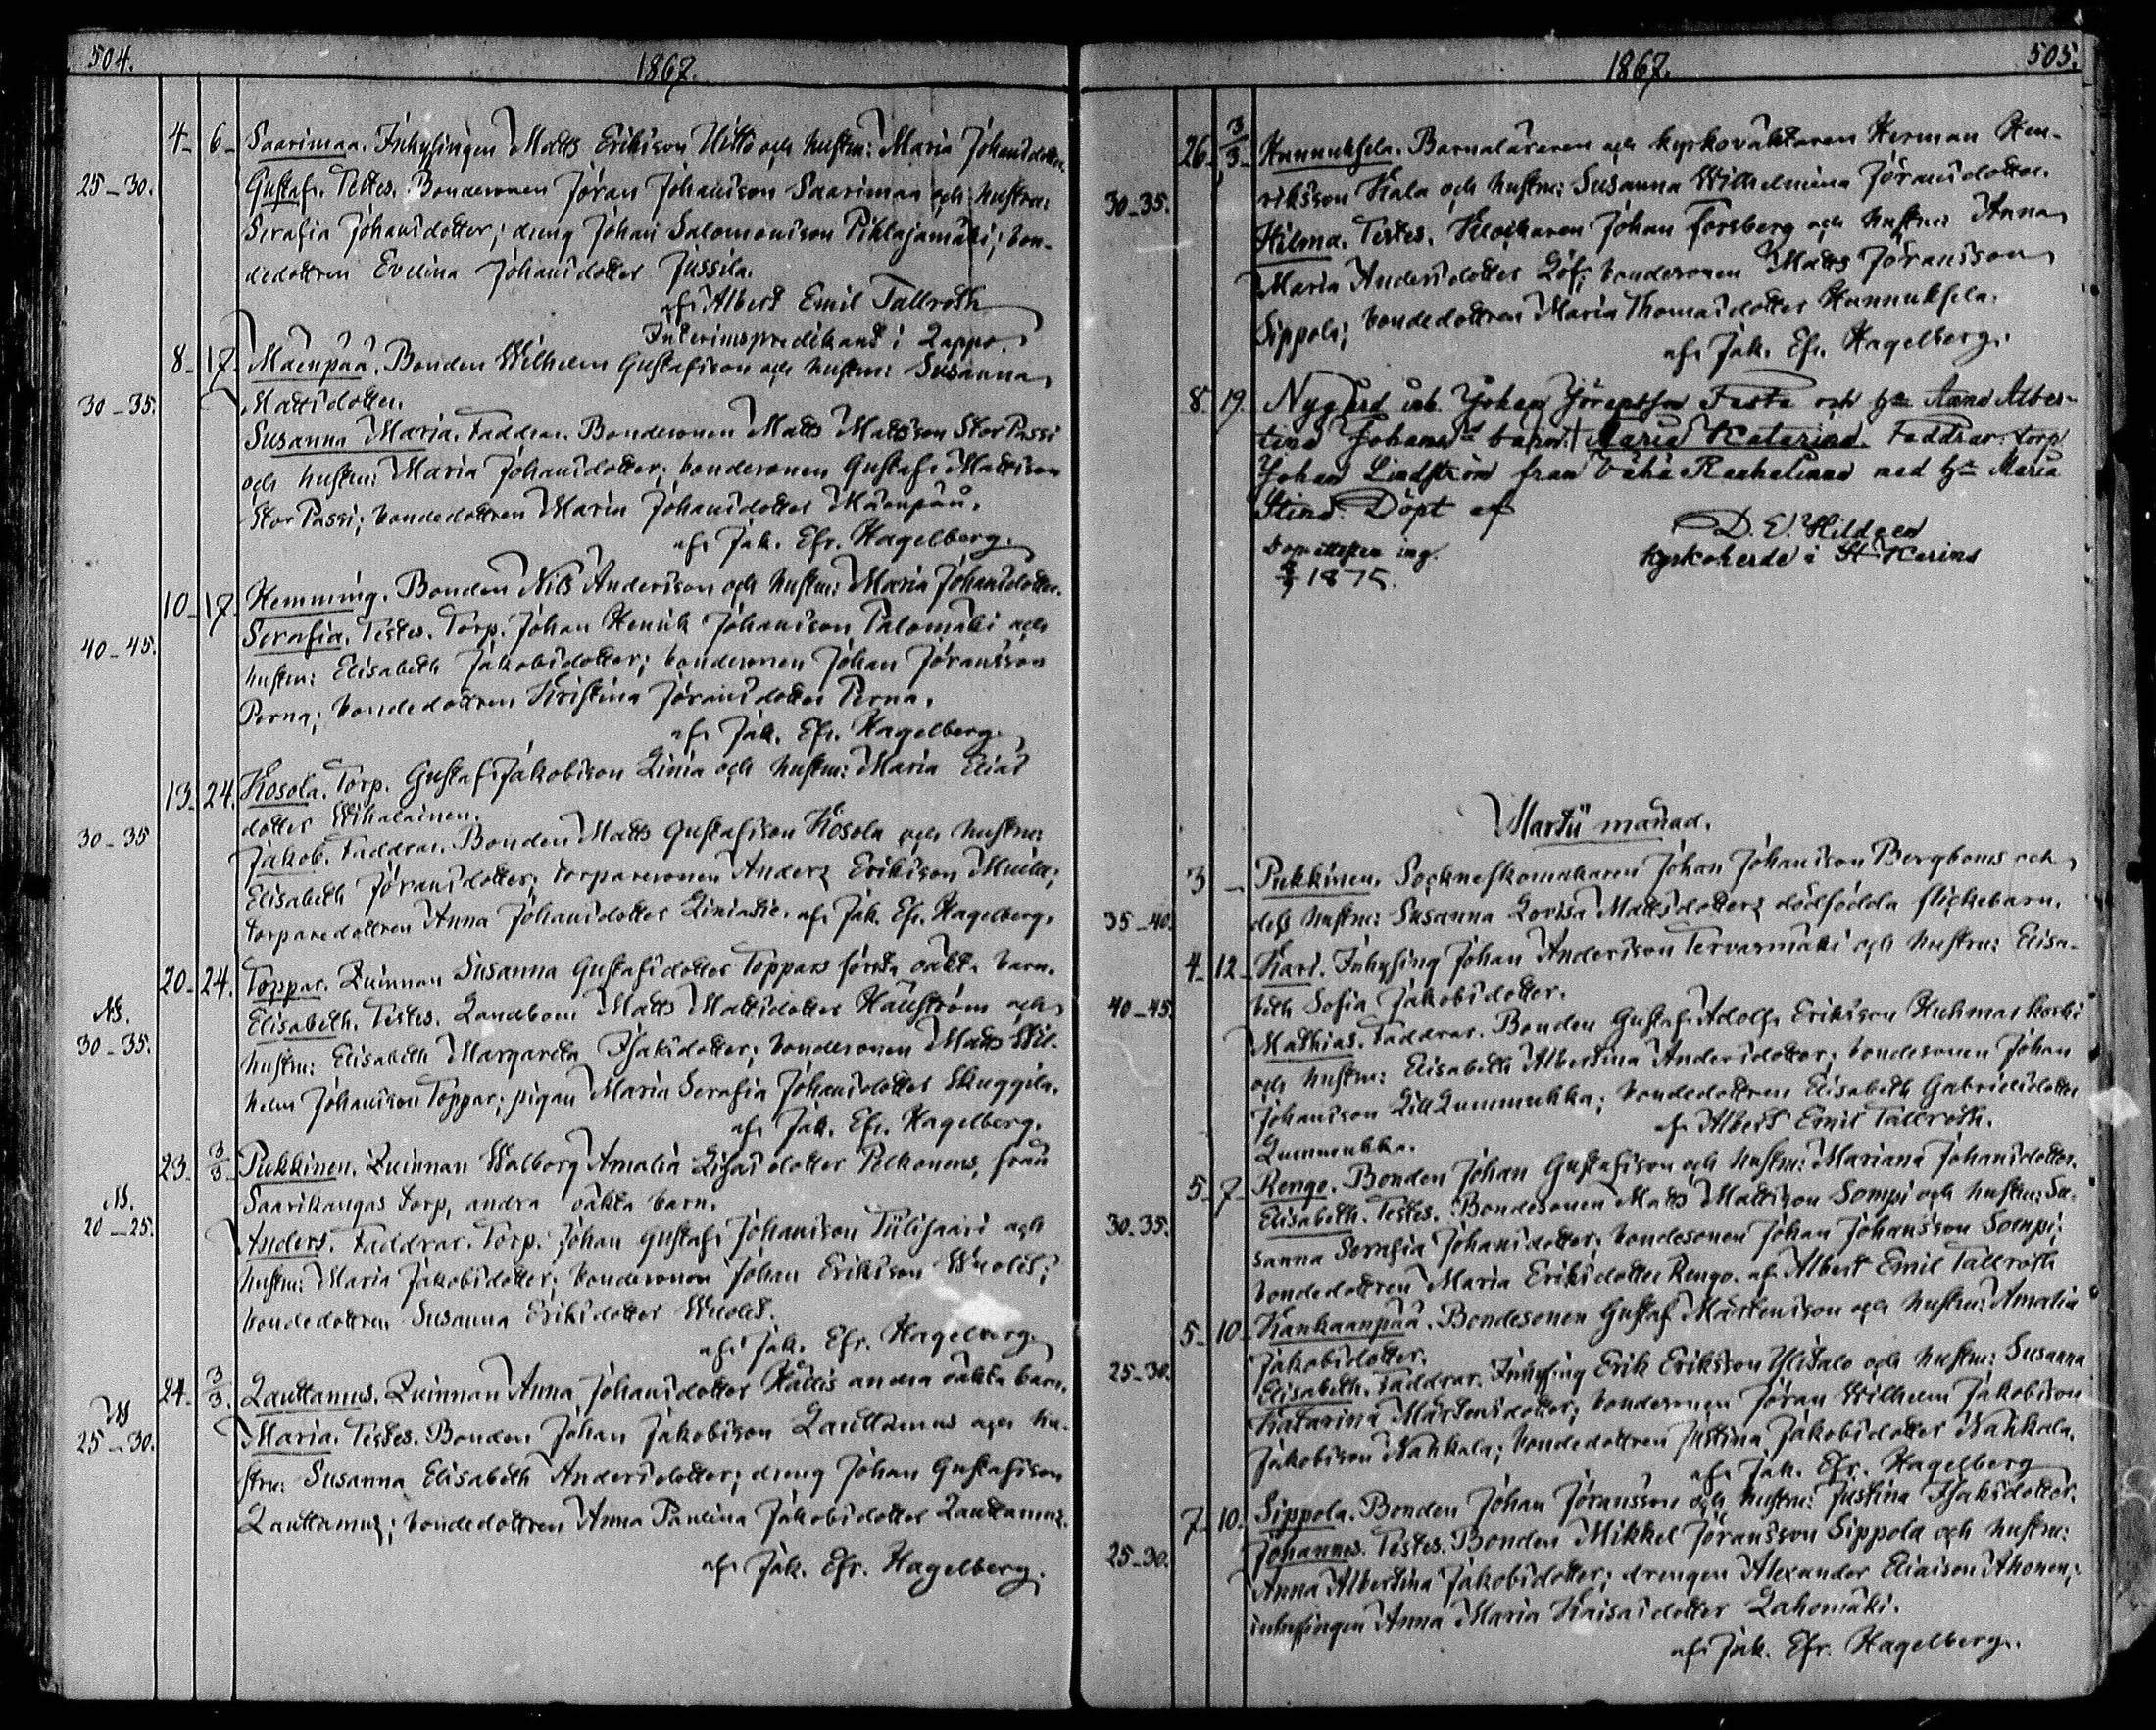 504.
1867.
4 6 Saarimaa. Inhysingen Matts Eriksson Hitto och hustru: Maria Johansdotter.
25-30. Gustaf. Testes. Bondesonen Jöran Johansson Saarimaa och hustru:
Serafia Johansdotter; dreng Johan Salomonsson Pihlajamäki; bon-
dedottren Evelina Johansdotter Jussila.
af Albert Emil Tallroth
Interimspredikant i Lappo.
8 17 Mäenpää. Bonden Wilhelm Gustafsson och hustru: Susanna
30-35. Mattsdotter.
Susanna Maria. Faddrar. Bondesonen Matts Mattsson Stor Passi
och hustru: Maria Johansdotter; bondesonen Gustaf Mattsson
Stor Passi; bondedottren Maria Johansdotter Mäenpää.
af Jak. Efr. Hagelberg.
10 17 Hemming. Bonden Nils Andersson och hustru: Maria Johansdotter.
40-45. Serafia. Testes. Torp. Johan Henrik Johansson Palomäki och
hustru: Elisabeth Jakobsdotter; bondesonen Johan Jöransson
Perna; bondedottren Kristina Jöransdotter Perna.
af Jak. Efr. Hagelberg.
13 24. Kosola. Torp. Gustaf Jakobsson Linia och hustru: Maria Elias
dotter Wihalainen.
30-35 Jakob. Faddrar. Bonden Matts Gustafsson Kosola och hustru:
Elisabeth Jöransdotter; torparesonen Anders Eriksson
torparedottren Anna Johansdotter af Jak. Efr. Hagelberg.
20 24. Toppar. Quinnan Susanna Gustafsdotter Toppars första oäkta barn.
Elisabeth. Testes. Landbon Matts Mattsdotter Hällström och
30-35. hustru: Elisabeth Margareta Isaksdotter; bondesonen Matts Wil-
helm Johansson Toppar; pigan Maria Serafia Johansdotter Skuggila.
af Jak. Efr. Hagelberg.
23 3/3 Pukkinen. Quinnan Walborg Amalia Pelkonens, från
Saarikangas torp, andra oäkta barn.
20-25. Anders. Faddrar. Torp. Johan Gustaf Johansson Tiilisaari och
hustru: Maria Jakobsdotter; bondesonen Johan Eriksson Wuolet;
bondedottren Susanna Eriksdotter Wuolet.
af Jak. Efr. Hagelberg.
24 3/3. Lauttamus. Quinnan Anna Johansdotter Källis andra oäkta barn.
25-30. Maria. Testes. Bonden Johan Jakobsson Lauttamus och hu-
stru: Susanna Elisabeth Andersdotter; dreng Johan Gustafsson
Lauttamus; bondedottren Anna Paulina Jakobsdotter Lauttamus.
af Jak. Efr. Hagelberg.
1867.
505.
26 3/3 Hannuksela. Barnaläraren och kyrkovaktaren Herman Hen-
30-35. riksson Kala och hustru: Susanna Wilhelmina Jöransdotter.
Hilma. Testes. Klockaren Johan Forsberg och hustru: Anna
Maria Andersdotter Löf; bondesonen Matts Jöransson
Sippola; bondedottren Maria Thomasdotter Hannuksela.
af Jak. Efr. Hagelberg.
8. 19. Nygård inh. Johan Jöransson Fasta och h:u Anna Alber-
tina Johansd:r barn. † Maria Katarina. Faddrar: torp
Johan Lindström från Vähä Raahelinna med h:u Maria
Stina. Döpt af
D. E. Hildgen
Dopattesten ing. kyrkoherde i St Karins
1875.
Martii månad.
3 - Pukkinen. Socknekomakaren Johan Johansson Bergboms och
35-40. dess hustru: Susanna Lovisa Mattsdotters dödfödda flickebarn.
4 12 Kari. Inhysing Johan Andersson Tervasmäki och hustru: Elisa-
40-45. beth Sofia Jakobsdotter.
Mathias. Faddrar. Bonden Gustaf Adolf Eriksson Huhmarkoski
och hustru: Elisabeth Albertina Andersdotter; bondesonen Johan
Johansson Lill Lummukka; bondedottren Elisabeth Gabrielsdotter
Lummukka. af Albert Emil Tallroth.
5 7 Rengo. Bonden Johan Gustafsson och hustru: Mariana Johansdotter.
30-35. Elisabeth. Testes. Bondesonen Matts Mattsson Sompi och hustru: Su-
sanna Serafia Johansdotter; bondesonen Johan Johansson Sompi;
bondedottren Maria Eriksdotter Rengo. af Albert Emil Tallroth
5 10 Kankaanpää. Bondesonen Gustaf Mårtensson och hustru: Amalia
Jakobsdotter.
25-30. Elisabeth. Faddrar. Inhysing Erik Eriksson Ylisalo och hustru: Susanna
Katarina Mårtensdotter; bondesonen Jöran Wilhelm Jakobsson
Jakobsson Nahkala; bondedottren Justina Jakobsdotter Nahkala.
af Jak. Efr. Hagelberg
7 10 Sippola. Bonden Johan Jöransson och hustru: Justina Isaksdotter.
25-30. Johannes. Testes. Bonden Mikkel Jöransson Sippola och hustru:
Anna Albertina Jakobsdotter; drengen Alexander Eliasson Ahonen;
inhysingen Anna Maria Kaisasdotter Lahomäki.
af Jak. Efr. Hagelberg.